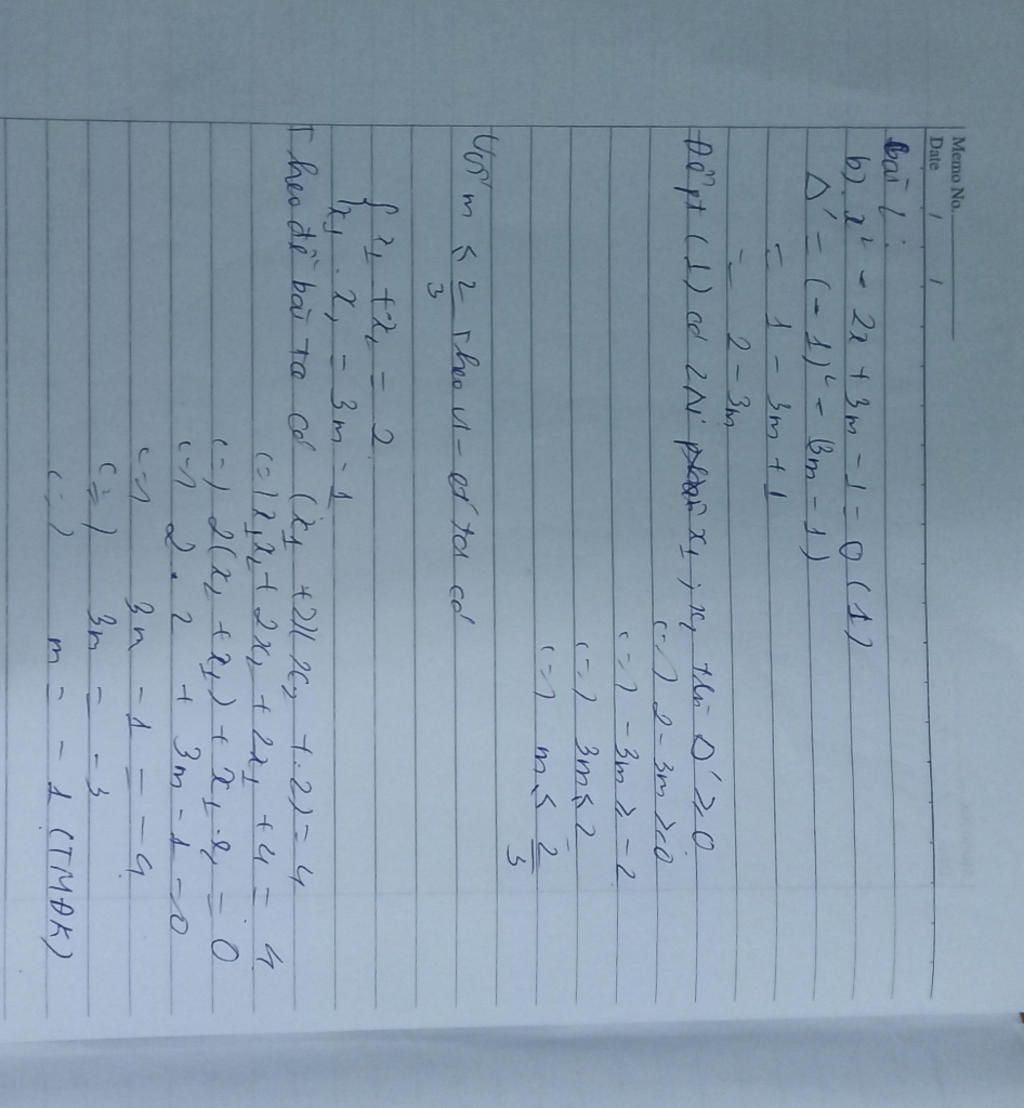 Memo No.
Date / /
bài 1:
b) x² - 2x + 3m - 1 = 0 (1)
Δ' = (-1)² - (3m - 1)
= 1 - 3m + 1
= 2 - 3m
Để pt (1) có 2 N x₁; x₂ thì Δ' ≥ 0
(=) 2 - 3m ≥ 0
(=) - 3m ≥ - 2
(=) 3m ≤ 2
(=) m ≤ 2/3
Với m ≤ 2/3 Theo vi-ét ta có
{ x₁ + x₂ = 2
x₁ . x₂ = 3m - 1
Theo đề bài ta có (x₁ + 2)(x₂ + 2) = 4
(=) x₁x₂ + 2x₂ + 2x₁ + 4 = 4
(=) 2(x₂ + x₁) + x₁.x₂ = 0
(=) 2.2 + 3m - 1 = 0
(=) 3m - 1 = - 4
(=) 3m = - 3
(=) m = - 1 (TMĐK)